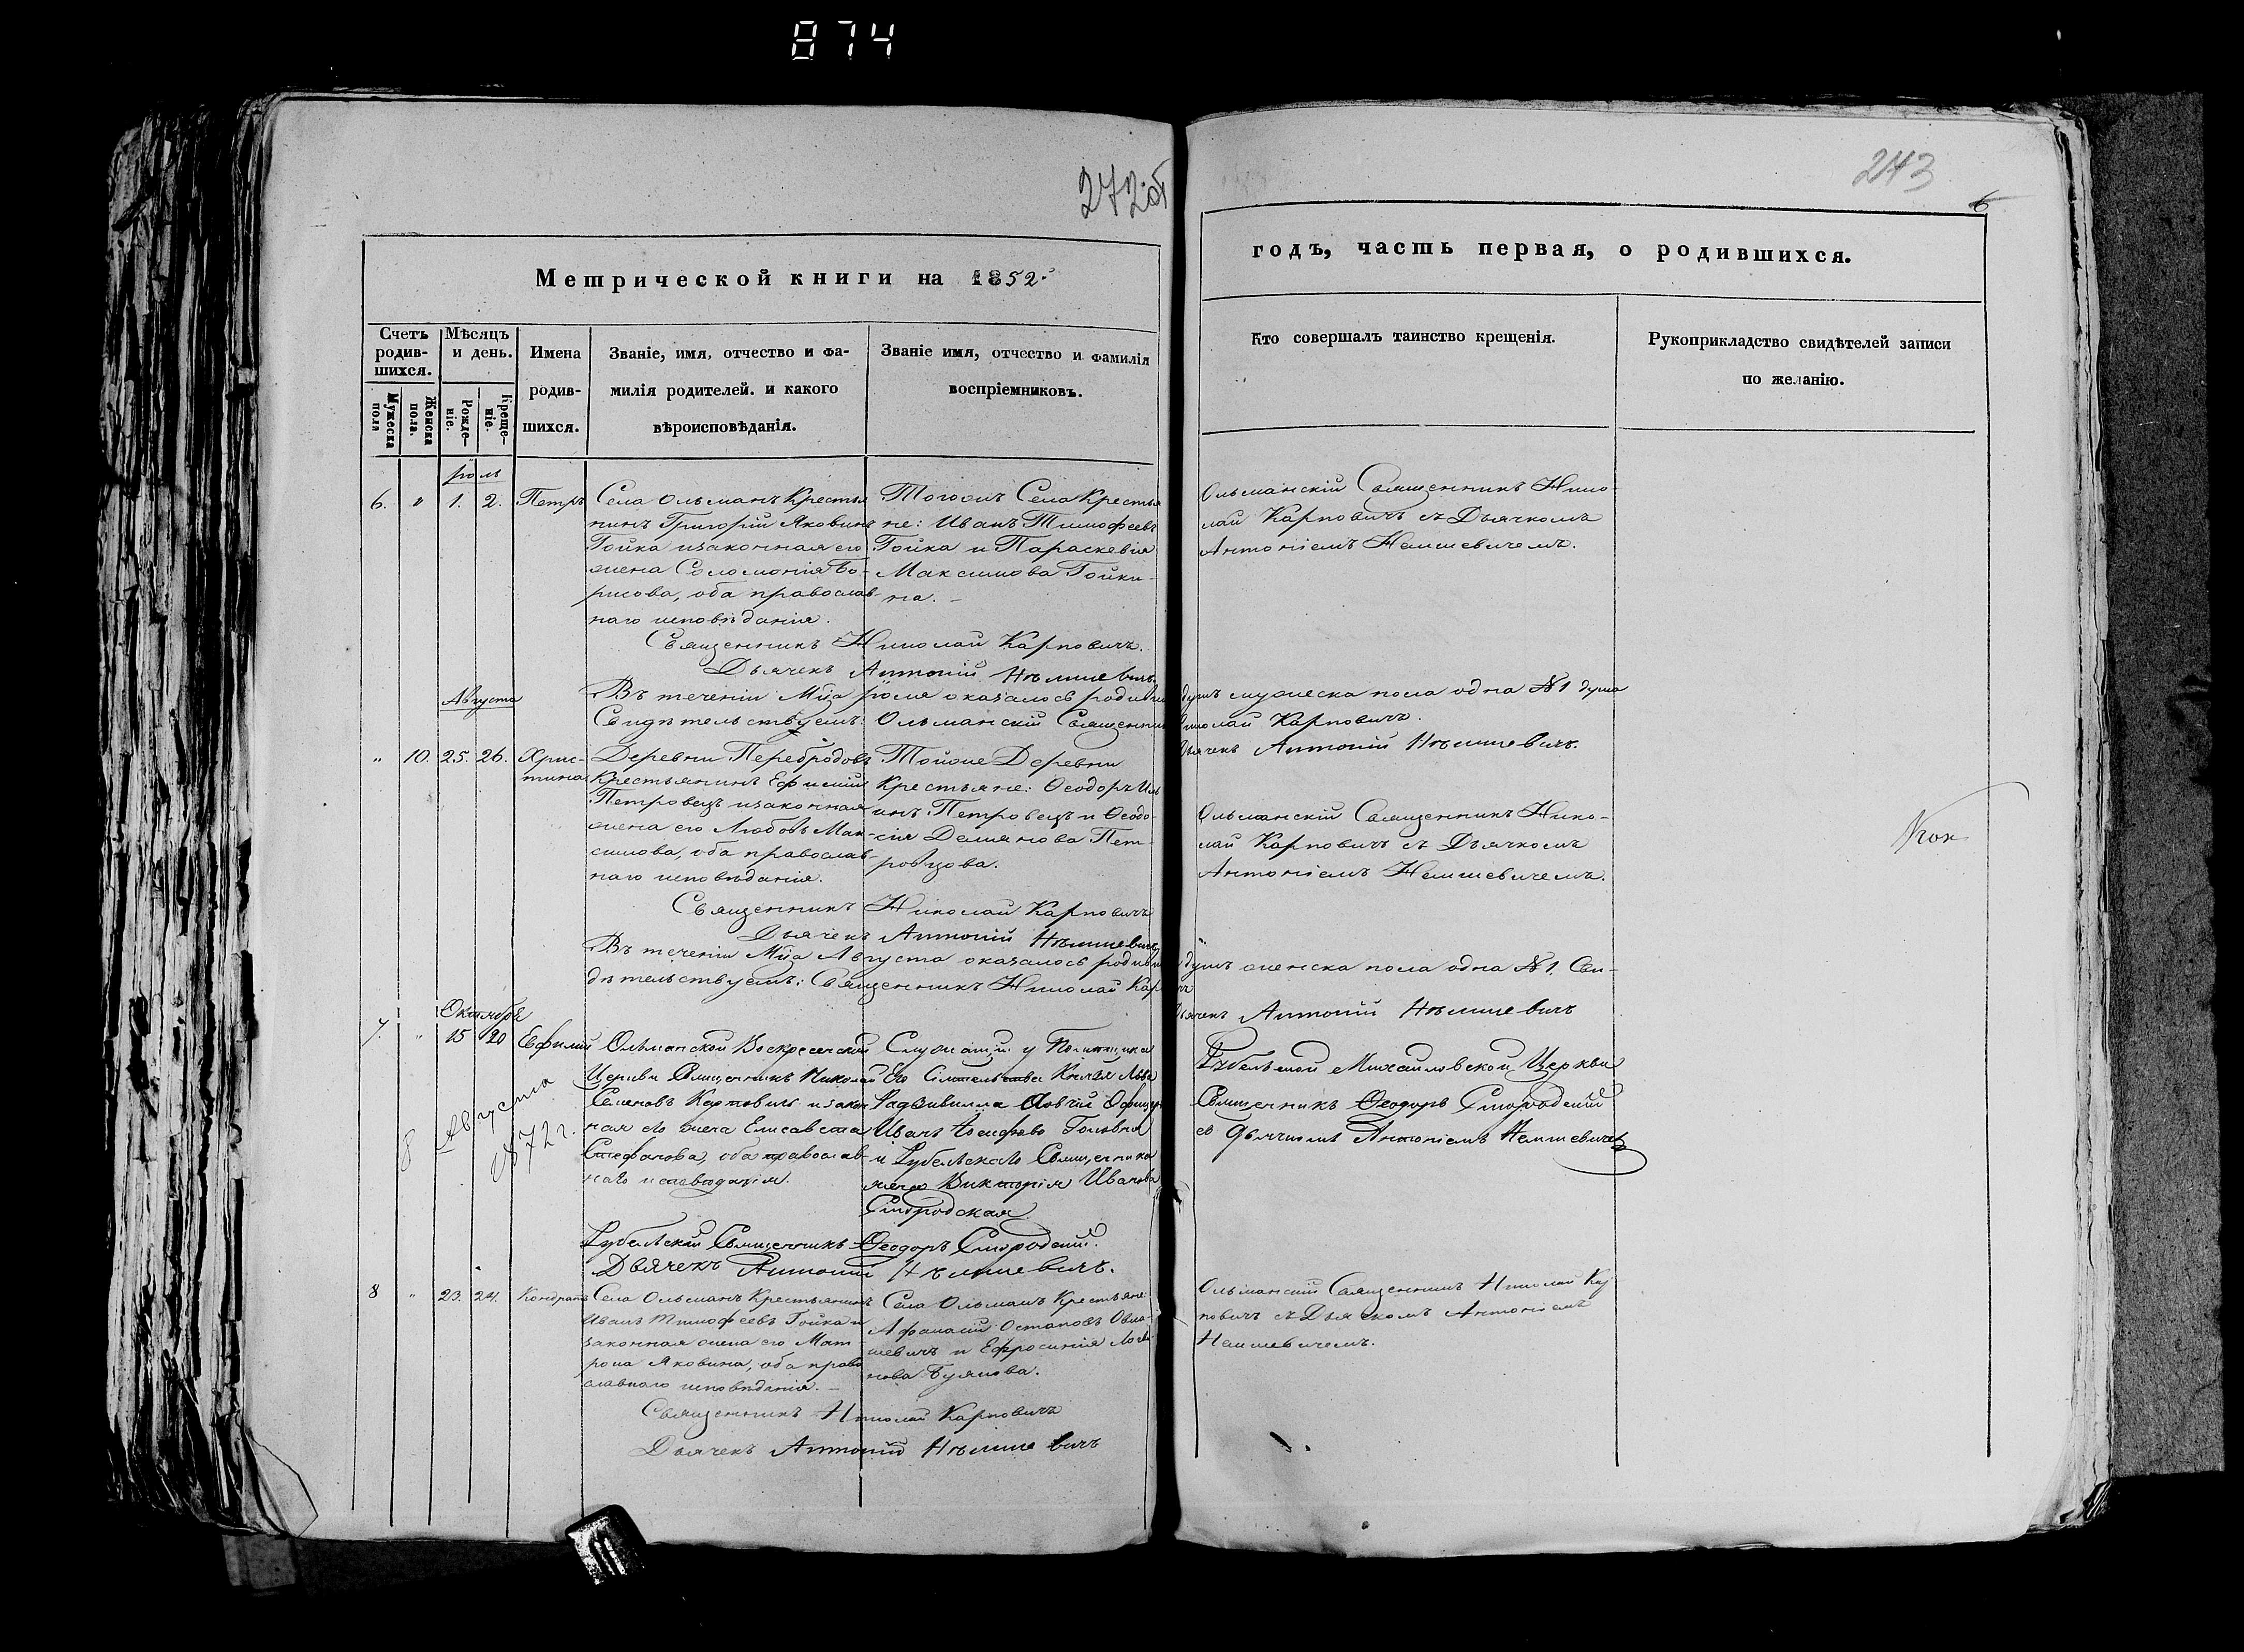 874
272об
243
6
Метрической книги на 1852.
годъ, часть первая, о родившихся.
Счетъ родив-шихся.
Мужеска пола
Женска пола.
Мѣсяцъ и день.
Рожде-ніе.
Креще-ніе.
Имена
родив-
шихся.
Званіе, имя, отчество и фа-
милія родителей. и какого
вѣроисповѣданія.
Званіе имя, отчество и фамилія
воспріемниковъ.
Кто совершалъ таинство крещенія.
Рукоприкладство свидѣтелей записи
по желанію.
Іюль
6. " 1. 2. Петръ
Села Ольманъ Крестья
нинъ Григорій Яковинъ
Гойка изаконная его
жена Соломонія Бо-
рисова, оба православ-
наго исповѣданія.
Тогожъ Села Крестья
не: Иванъ Тимофеевъ
Гойка и Параскевія
Максимова Гойки-
на. –
Ольманскій Священникъ Нико-
лай Карповичъ съ Дьячкомъ
Антоніемъ Немшевичемъ.
Священникъ Николай Карповичъ.
Дьячекъ Антоній Нѣмшевичъ
Въ теченіи Мца Іюля оказалось родивши душъ мужеска пола одна №1 душа
Свидѣтельствуемъ: Ольманскій Священник Николай Карповичъ.
Дьячекъ Антоній Нѣмшевичъ.
Августа
" 10. 25. 26. Хрис-
тина
Деревни Перебродовъ
Крестьянинъ Ефимій
Петровецъ изаконная
жена его Любовь Мак-
симова, оба православ-
наго исповѣданія.
Тойже Деревни
Крестьяне: Ѳеодоръ Иль
инъ Петровецъ и Ѳеодо-
сія Демянова Пет-
ровцова.
Ольманскій Священникъ Нико-
лай Карповичъ съ Дьячкомъ
Антоніемъ Немшевичемъ.
Священникъ Николай Карповичъ
Дьячекъ Антоній Нѣмшевичъ
Въ теченіи Мца Августа оказалось родивши душъ женска пола одна №1. Сви-
дѣтельствуемъ: Священникъ Николай Карповичъ
Дьячекъ Антоній Нѣмшевичъ
Октября
7. " 15 20 Ефимій
8 Августа
1872 г.
Ольманской Воскресенской
Церкви Священникъ Николай
Семеновъ Карповичъ и закон
ная его жена Елисавета
Стефанова, оба православ-
наго исповѣданія.
Служащій у
Его Сіятельства Князя Льва
Радзивилла Ловчій
Иванъ Іосифово
и Рубельскаго Священника
жена Викторія Иванова
Рубельской Михайловской Церкви
Священникъ Ѳеодоръ
съ Дьячкомъ Антоніемъ Немшевичемъ
Рубельскій Священникъ Ѳеодоръ
Дьячекъ Антоній Нѣмшевичъ.
8 " 23. 24. Кондратъ
Села Ольманъ Крестьянинъ
Иванъ Тимофеевъ Гойка и
законная жена его Мат-
рона Яковина, оба право
славнаго исповѣданія. –
Села Ольманъ Крестьяне
Афанасій Остаповъ
и Ефросинія
нова Буянова.
Ольманскій Священникъ Николай Кар
повичъ съ Дьячкомъ Антоніемъ
Немшевичемъ.
Священникъ Николай Карповичъ
Дьячекъ Антоній Нѣмшевичъ